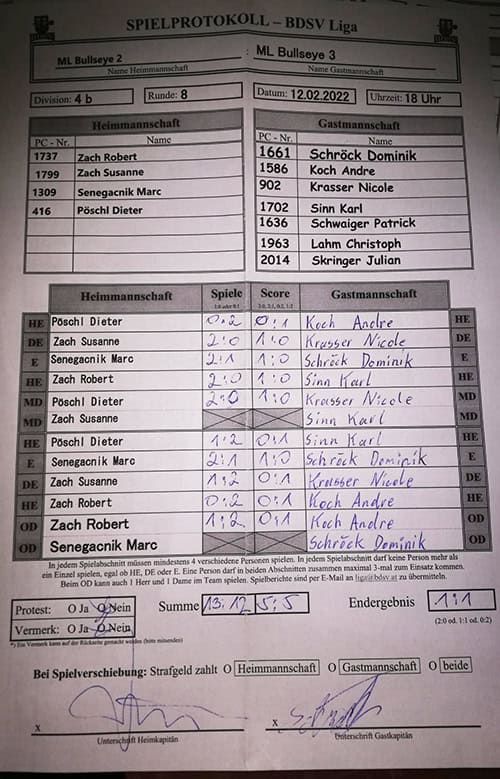 SPIELPROTOKOLL – BDSV Liga
ML Bullseye 2 : ML Bullseye 3
Name Heimmannschaft Name Gastmannschaft
Division: 4 b Runde: 8 Datum: 12.02.2022 Uhrzeit: 18 Uhr
Heimmannschaft Gastmannschaft
PC - Nr. Name PC - Nr. Name
1737 Zach Robert 1661 Schröck Dominik
1799 Zach Susanne 1586 Koch Andre
1309 Senegacnik Marc 902 Krasser Nicole
416 Pöschl Dieter 1702 Sinn Karl
1636 Schwaiger Patrick
1963 Lahm Christoph
2014 Skringer Julian
Heimmannschaft Spiele Score Gastmannschaft
2:0 oder 0:1 3:0, 2:1, 0:3, 1:2
HE Pöschl Dieter 0:2 0:1 Koch Andre HE
DE Zach Susanne 2:0 1:0 Krasser Nicole DE
E Senegacnik Marc 2:1 1:0 Schröck Dominik E
HE Zach Robert 2:0 1:0 Sinn Karl HE
MD Pöschl Dieter 2:0 1:0 Krasser Nicole MD
MD Zach Susanne Sinn Karl MD
HE Pöschl Dieter 1:2 0:1 Sinn Karl HE
E Senegacnik Marc 2:1 1:0 Schröck Dominik E
DE Zach Susanne 1:2 0:1 Krasser Nicole DE
HE Zach Robert 0:2 0:1 Koch Andre HE
OD Zach Robert 1:2 0:1 Koch Andre OD
OD Senegacnik Marc Schröck Dominik OD
In jedem Spielabschnitt müssen mindestens 4 verschiedene Personen spielen. In jedem Spielabschnitt darf keine Person mehr als
ein Einzel spielen, egal ob HE, DE oder E. Eine Person darf in beiden Abschnitten zusammen maximal 3-mal zum Einsatz kommen.
Beim OD kann auch 1 Herr und 1 Dame im Team spielen. Spielberichte sind per E-Mail an liga@bdsv.at zu übermitteln.
Protest: O Ja O Nein Summe 13:12 5:5 Endergebnis 1:1
Vermerk: O Ja O Nein (2:0 od. 1:1 od. 0:2)
*) Ein Vermerk kann auf der Rückseite gemacht werden (bitte mitsenden)
Bei Spielverschiebung: Strafgeld zahlt O Heimmannschaft O Gastmannschaft O beide
x x
Unterschrift Heimkapitän Unterschrift Gastkapitän